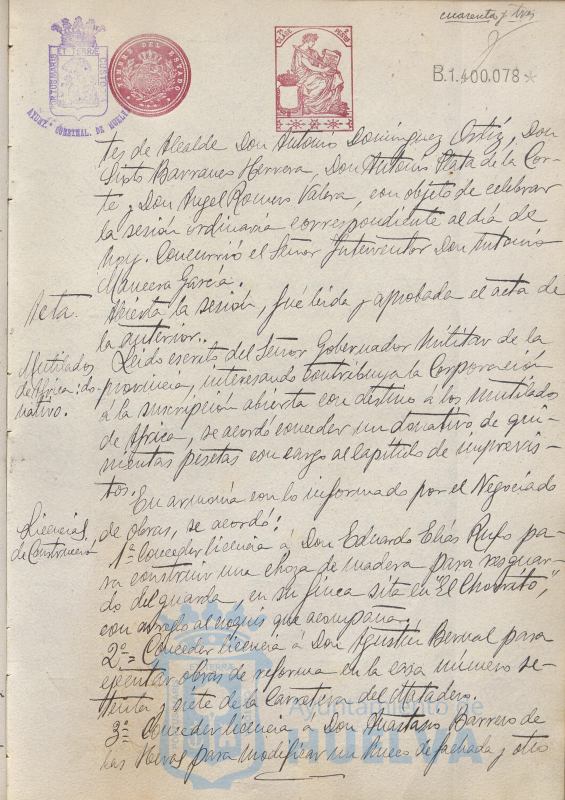 cuarenta y tres
PORTUS MARIS ET TERRÆ CUSTODIA
AYUNT. CONSTNAL. DE HUELVA
TIMBRE DEL ESTADO
B.1.400.078*
tes de Alcalde Don Antonio Dominguez Ortiz, Don
Sixto Barranco Herrera, Don Antonio Plata de la Cor-
te y Don Angel Romero Valera, con objeto de celebrar
la sesión ordinaria correspondiente al día de
hoy. Concurrió el Señor Interventor Don Antonio
Mancera García.
Acta. Abierta la sesión, fué leída y aprobada el acta de
la anterior.
Mutilados
de Africa: do-
nativo.
Leido escrito del Señor Gobernador Militar de la
provincia, interesando contribuya la Corporación
a la suscripción abierta con destino a los mutilados
de Africa, se acordó conceder un donativo de qui-
nientas pesetas con cargo al capítulo de imprevis-
tos.
Licencias
de Construcción
En armonía con lo informado por el Negociado
de obras, se acordó:
1º Conceder licencia á Don Eduardo Elías Rufo pa-
ra construir una choza de madera para resguar-
do del guarda, en su finca sita en "El Chorrito",
con arreglo al croquis que acompaña.
2º= Conceder licencia á Don Agustín Bernal para
ejecutar obras de reforma en la casa número se-
tenta y siete de la Carretera del Matadero.
3º Conceder licencia á Don Anastasio Barrero de
las Heras para modificar un hueco de fachada y otro
Ayuntamiento de
HUELVA